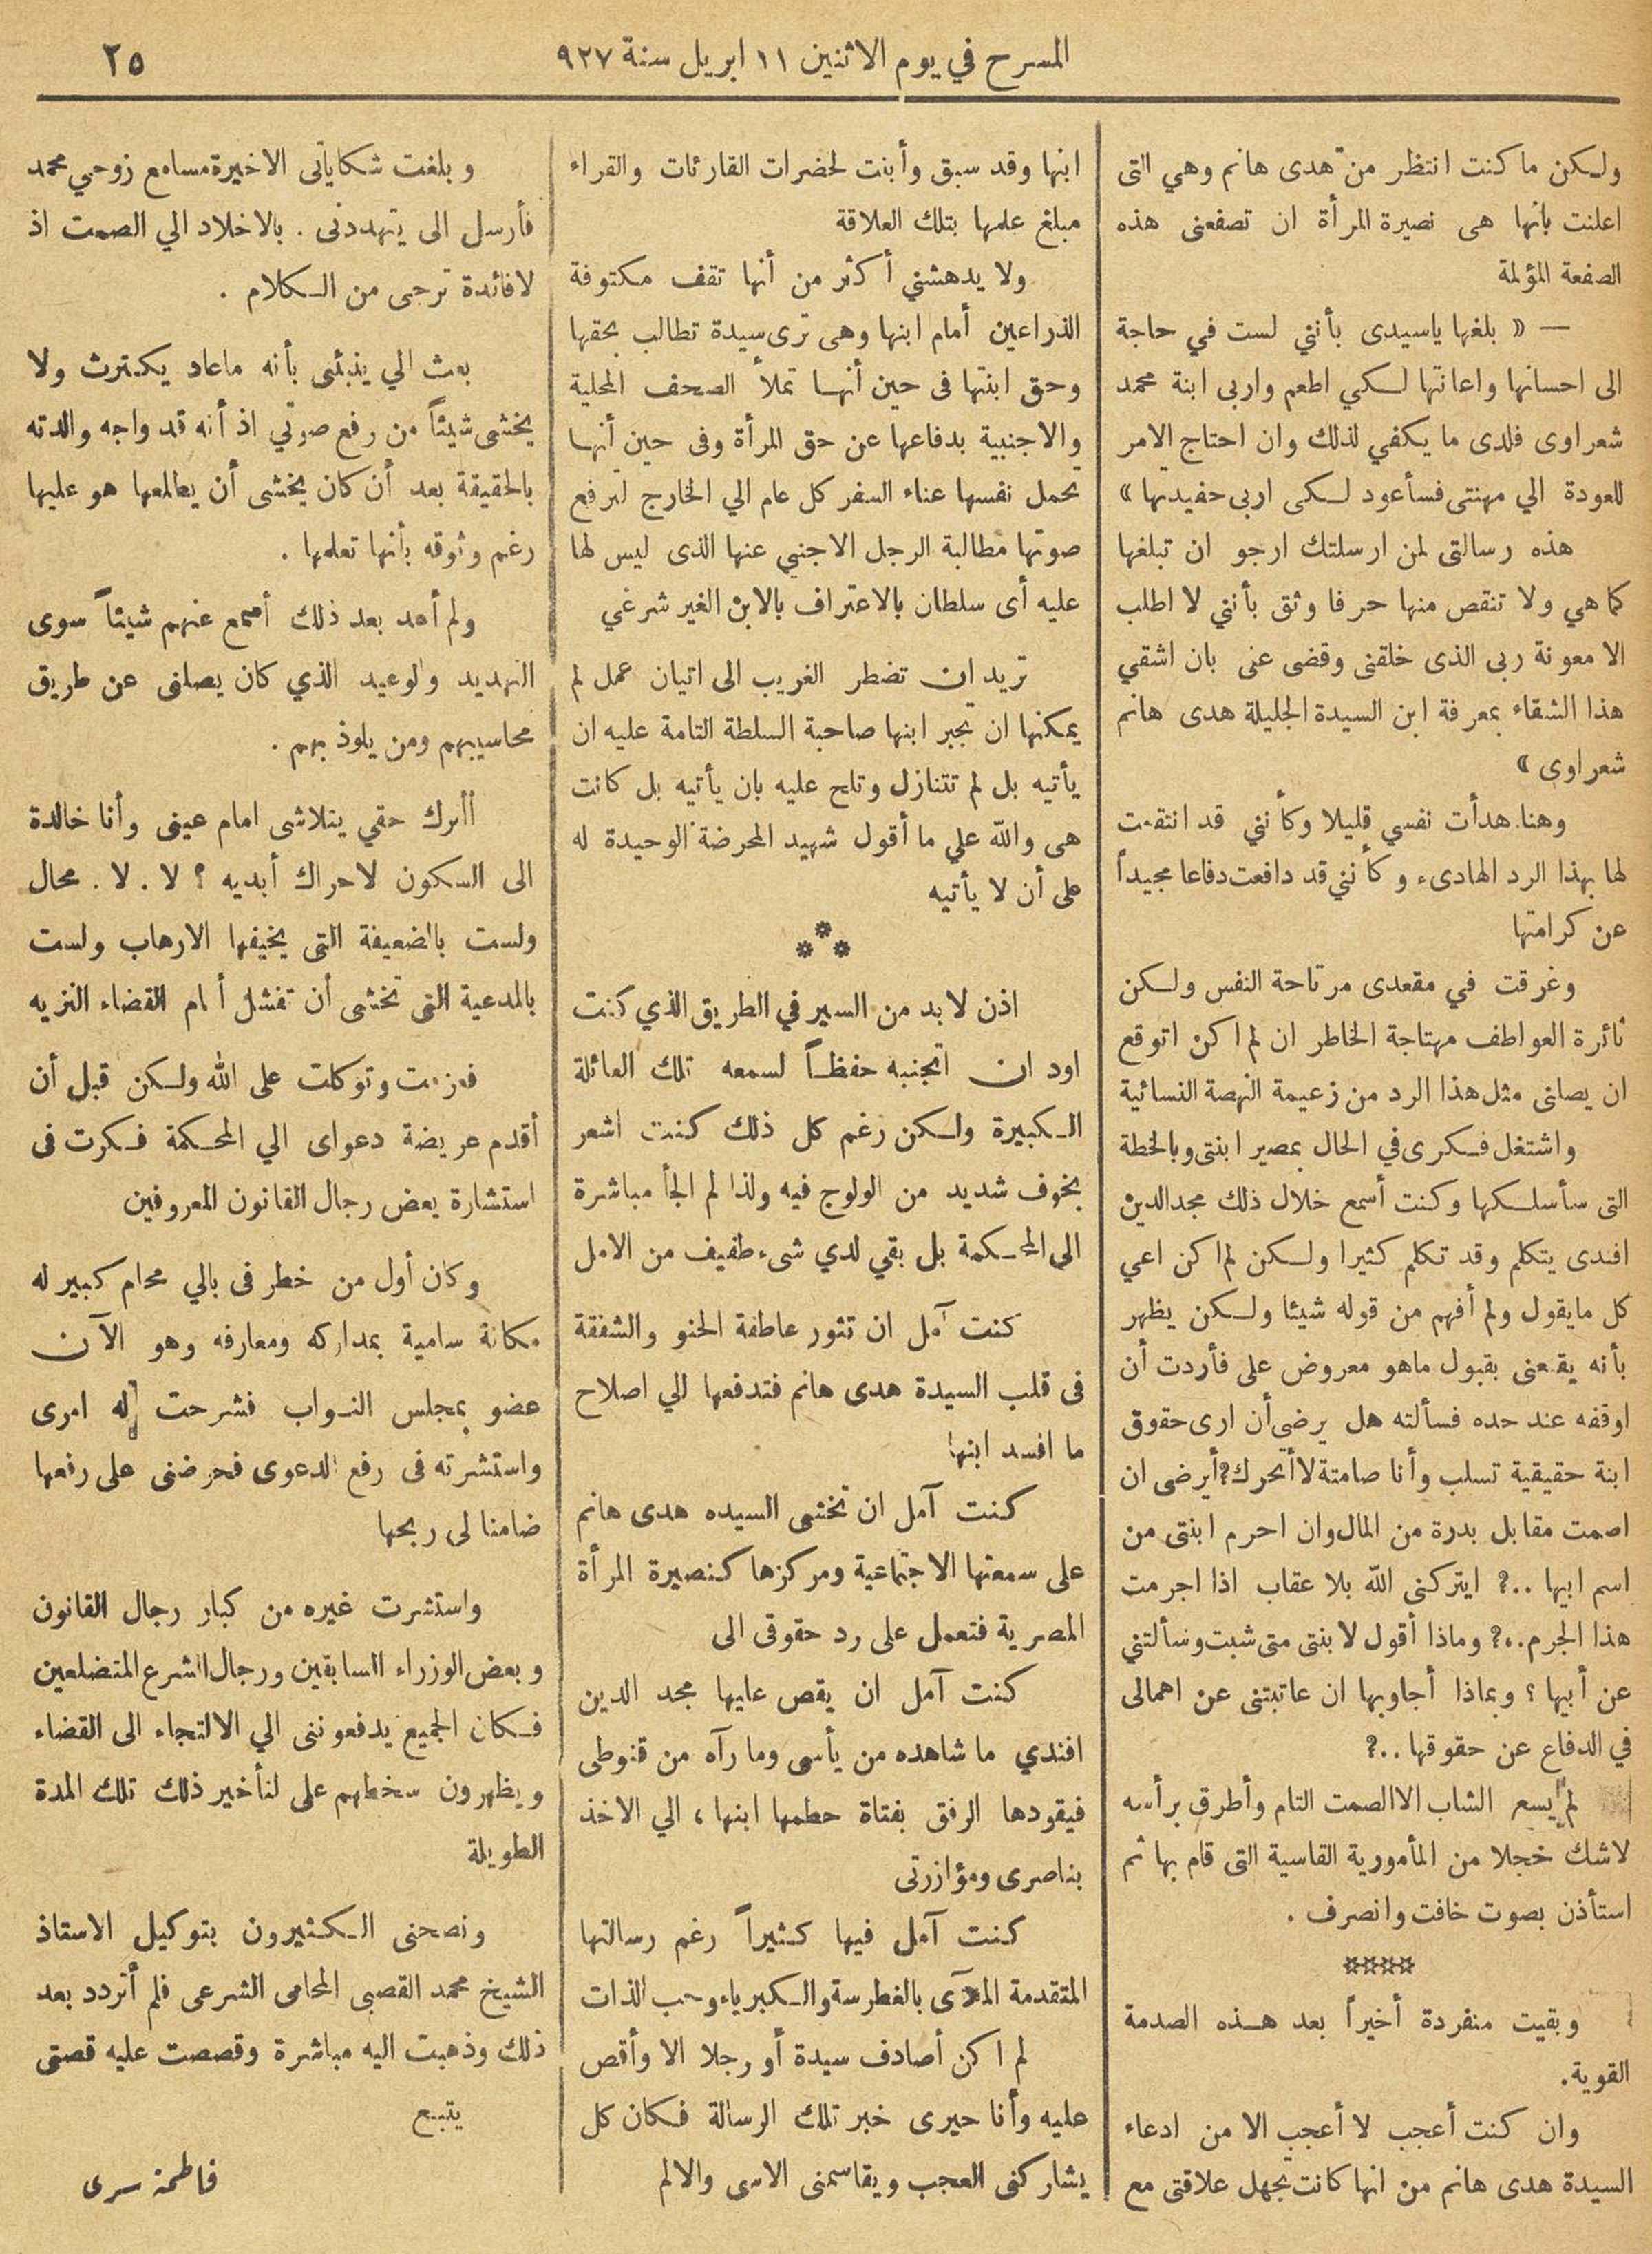 المسرح في يوم الاثنين ١١ ابريل سنة ٩٢٧
٢٥
ولكن ما كنت انتظر من هدى هانم وهي التى
اعلنت بانها هى نصيرة المرأة ان تصفعنى هذه
الصفعة المؤلمة
— « بلغها ياسيدى بأنني لست في حاجة
الى احسانها واعانتها لكي اطعم واربى ابنة محمد
شعراوى فلدى ما يكفي لذلك وان احتاج الامر
للعودة الي مهنتى فسأعود لكى اربى حفيدتها »
هذه رسالتى لمن ارسلتك ارجو ان تبلغها
كما هي ولا تنقص منها حرفا وثق بأننى لا اطلب
الا معونة ربى الذى خلقنى وقضى عنى بان اشقي
هذا الشقاء بمعرفة ابن السيدة الجليلة هدى هانم
شعراوى »
وهنا هدأت نفسي قليلا وكأنني قد انتقمت
لها بهذا الرد الهادىء وكأنني قد دافعت دفاعا مجيداً
عن كرامتها
وغرقت في مقعدى مرتاحة النفس ولكن
ثائرة العواطف مهتاجة الخاطر ان لم اكن اتوقع
ان يصلنى مثل هذا الرد من زعيمة النهضة النسائية
واشتغل فكرى في الحال بمصير ابنتى وبالخطة
التى سأسلكها وكنت أسمع خلال ذلك مجد الدين
افندى يتكلم وقد تكلم كثيرا ولكن لم اكن اعي
كل مايقول ولم أفهم من قوله شيئا ولكن يظهر
بأنه يقنعنى بقبول ماهو معروض على فأردت أن
اوقفه عند حده فسألته هل يرضى أن ارى حقوق
ابنة حقيقية تسلب وأنا صامتة لا أتحرك؟ أيرضى ان
اصمت مقابل بدرة من المال وان احرم ابنتى من
اسم ابيها ..؟ ايتركنى الله بلا عقاب اذا اجرمت
هذا الجرم..؟ وماذا أقول لابنتى متى شبت وسألتني
عن أبيها ؟ وبماذا أجاوبها ان عاتبتنى عن اهمالى
في الدفاع عن حقوقها ..؟
لم يسع الشاب الا الصمت التام وأطرق برأسه
لاشك خجلا من المأمورية القاسية التى قام بها ثم
استأذن بصوت خافت وانصرف .
****
وبقيت منفردة أخيراً بعد هذه الصدمة
القوية.
وان كنت أعجب لا أعجب الا من ادعاء
السيدة هدى هانم من انها كانت بجهل علاقتى مع
ابنها وقد سبق وأبنت لحضرات القارئات والقراء
مبلغ علمها بتلك العلاقة
ولا يدهشني أكثر من أنها تقف مكتوفة
الذراعين أمام ابنها وهى ترى سيدة تطالب بحقها
وحق ابنتها فى حين أنها تملأ الصحف المحلية
والاجنبية بدفاعها عن حق المرأة وفى حين أنها
تحمل نفسها عناء السفر كل عام الي الخارج لترفع
صوتها مطالبة الرجل الاجنبي عنها الذى ليس لها
عليه أى سلطان بالاعتراف بالابن الغير شرعي
تريد ان تضطر الغريب الى اتيان عمل لم
يمكنها ان تجبر ابنها صاحبة السلطة التامة عليه ان
يأتيه بل لم تتنازل وتلح عليه بان يأتيه بل كانت
هى والله علي ما أقول شهيد المحرضة الوحيدة له
على أن لا يأتيه
***
اذن لا بد من السير في الطريق الذي كنت
اود ان اتجنبه حفظاً لسمعه تلك العائلة
الكبيرة ولكن رغم كل ذلك كنت اشعر
بخوف شديد من الولوج فيه ولذا لم الجأ مباشرة
الى المحكمة بل بقي لدي شىء طفيف من الامل
كنت آمل ان تثور عاطفة الحنو والشفقة
فى قلب السيدة هدى هانم فتدفعها الي اصلاح
ما افسد ابنها
كنت آمل ان تخشى السيده هدى هانم
على سمعتها الاجتماعية ومركزها كنصيرة المرأة
المصرية فتعمل على رد حقوقى الى
كنت آمل ان يقص عليها مجد الدين
افندي ما شاهده من يأسى وما رآه من قنوطى
فيقودها الرفق بفتاة حطمها ابنها، الي الاخذ
بناصرى ومؤازرتى
كنت آمل فيها كثيراً رغم رسالتها
المتقدمة الملآى بالغطرسة والكبرياء وحب الذات
لم اكن أصادف سيدة أو رجلا الا وأقص
عليه وأنا حيرى خبر تلك الرسالة فكان كل
يشاركنى العجب ويقاسمنى الاسى والالم
وبلغت شكاياتى الاخيرة مسامع زوجي محمد
فأرسل الى يتهددنى . بالاخلاد الي الصمت اذ
لا فائدة ترجى من الكلام .
بعث الي ينبئنى بأنه ماعاد يكترث ولا
يخشى شيئاً من رفع صوتي اذ أنه قد واجه والدته
بالحقيقة بعد أن كان يخشى أن يطلعها هو عليها
رغم وثوقه بأنها تعلمها .
ولم أعد بعد ذلك أسمع عنهم شيئاً سوى
التهديد والوعيد الذي كان يصلنى عن طريق
محاسيبهم ومن يلوذ بهم .
أأترك حقي يتلاشى امام عينى وأنا خالدة
الى السكون لا حراك أبديه ؟ لا . لا . محال
ولست بالضعيفة التى يخيفها الارهاب ولست
بالمدعية التى تخشى أن تفشل أمام القضاء النزيه
فعزمت وتوكلت على الله ولكن قبل أن
أقدم عريضة دعواى الي المحكمة فكرت فى
استشارة بعض رجال القانون المعروفين
وكان أول من خطر فى بالي محام كبير له
مكانة سامية بمداركه ومعارفه وهو الآن
عضو بمجلس النواب فشرحت له امرى
واستشرته فى رفع الدعوى فحرضنى على رفعها
ضامنا لى ربحها
واستشرت غيره من كبار رجال القانون
وبعض الوزراء السابقين ورجال الشرع المتضلعين
فكان الجميع يدفعوننى الي الالتجاء الى القضاء
ويظهرون سخطهم على لتأخير ذلك تلك المدة
الطويلة
ونصحنى الكثيرون بتوكيل الاستاذ
الشيخ محمد القصبى المحامى الشرعى فلم أتردد بعد
ذلك وذهبت اليه مباشرة وقصصت عليه قصتى
يتبع
فاطمة سرى